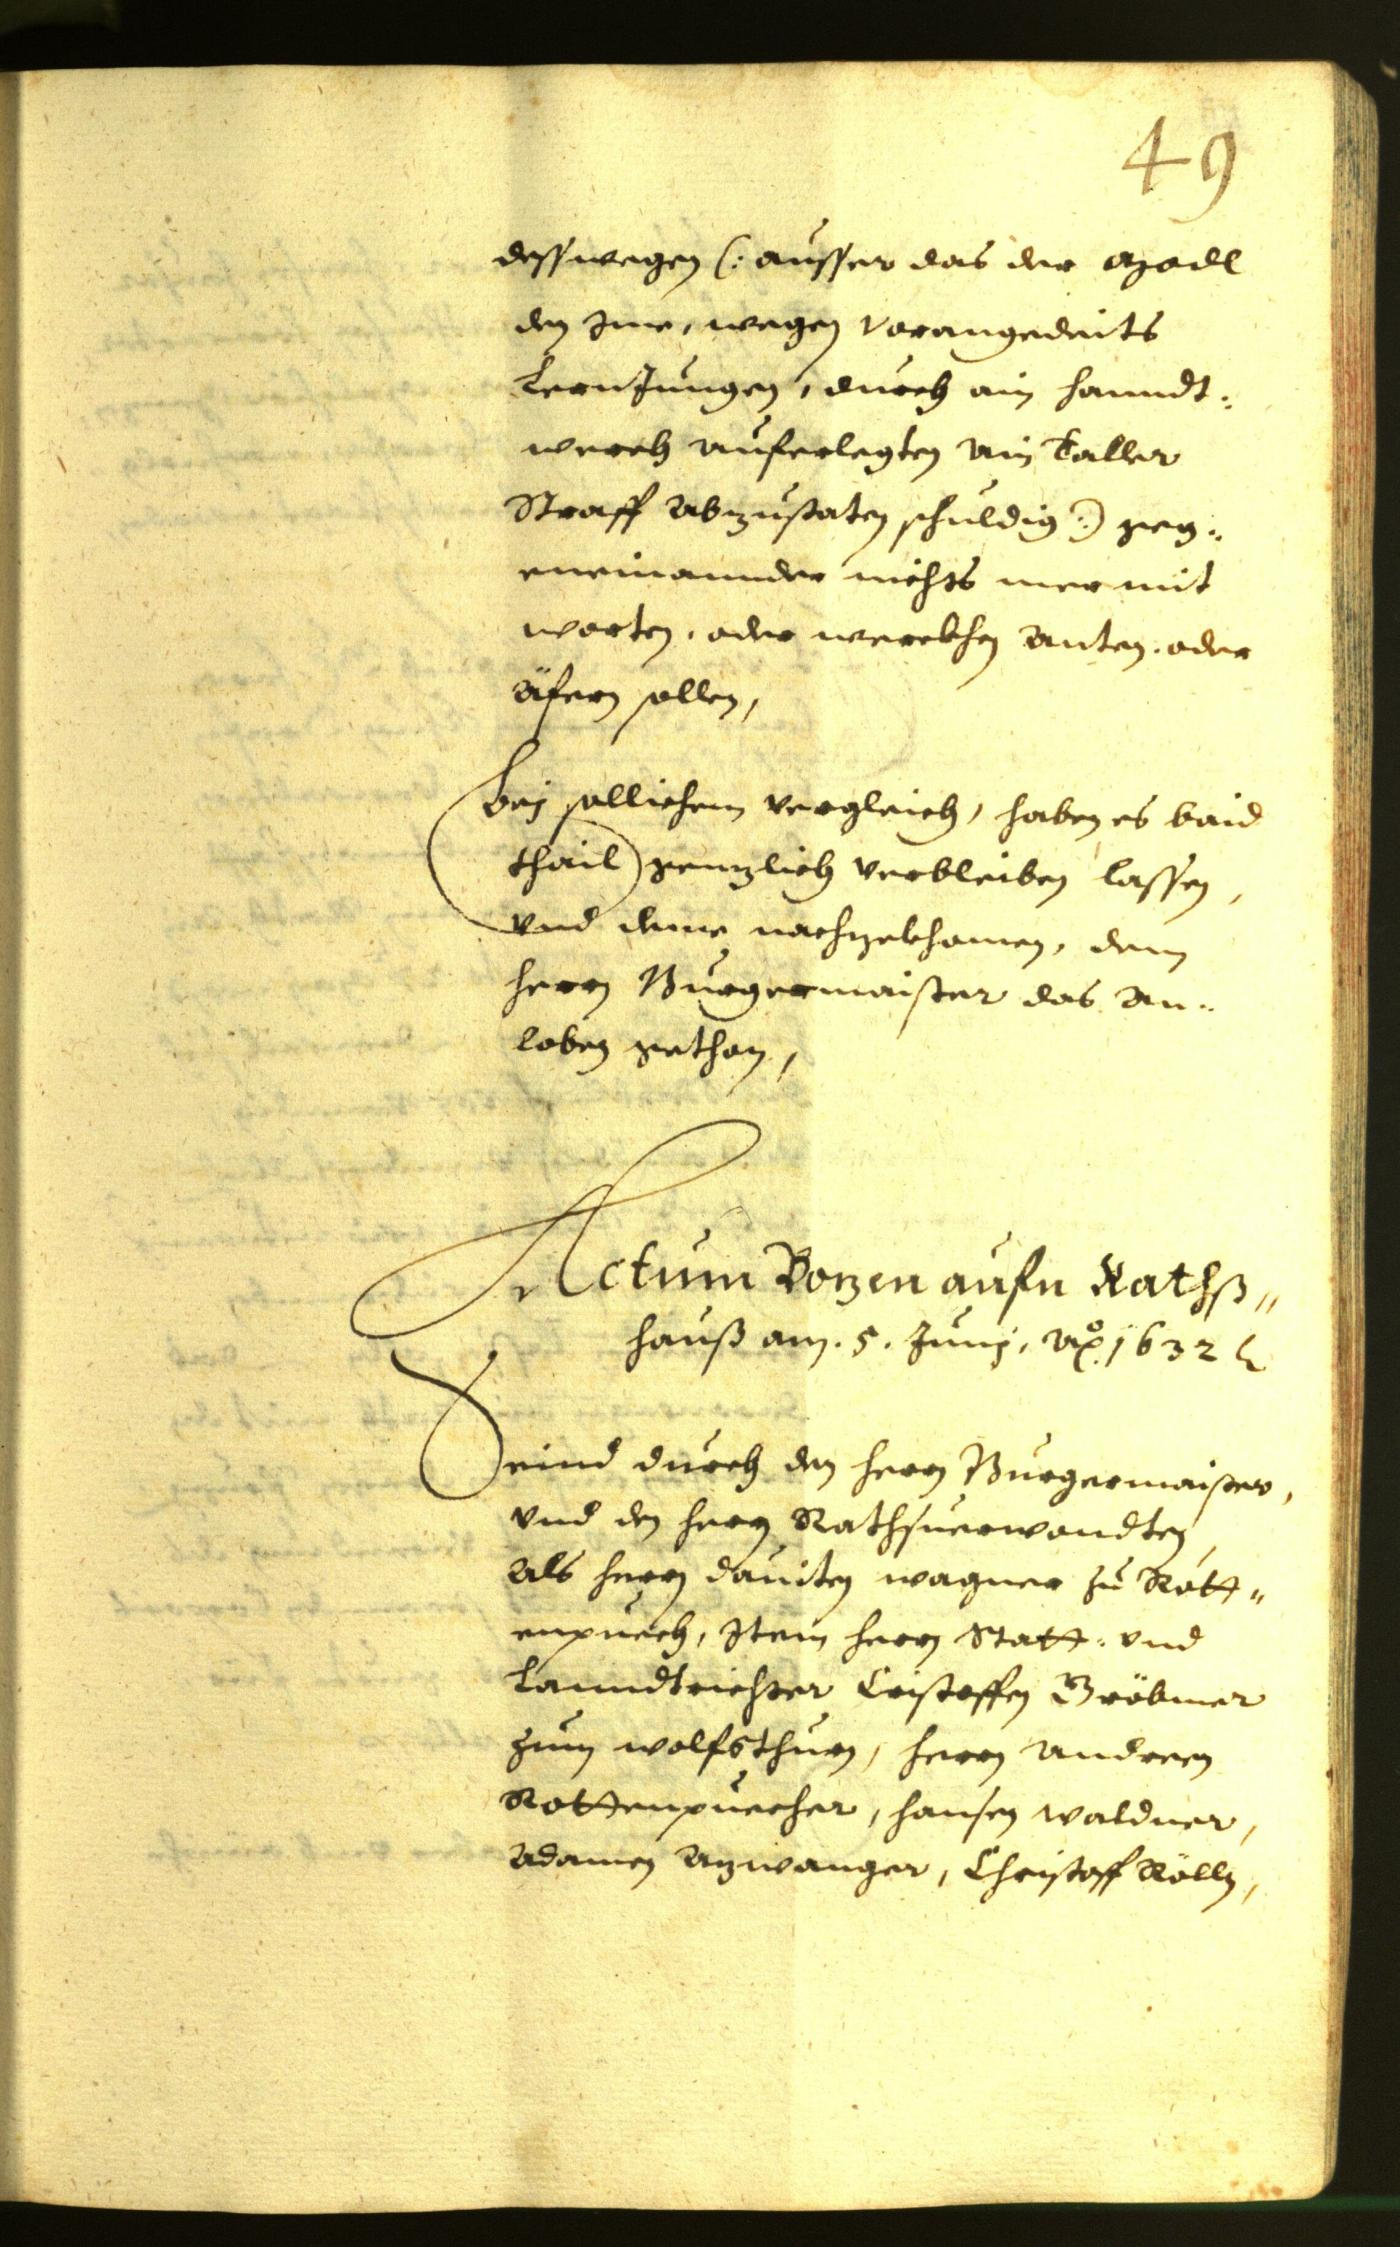 49
desswegen (: ausser das der Madl
den Ime, wegen vorangedeits
LernJungen, durch ain Handt-
werch auferlegten ain Taller
Straff abzustaten schuldig :) geg-
eneinannder nichts mer mit
worten, oder werckhen anten, oder
äfern sollen,
Bey sollichem vergleich, haben es baid
thail genzlich verbleiben lassen,
vnd deme nachzekhomen, dem
herrn Burgermaister das an-
loben gethan,
Actum Bozen aufn Rathß-
hauß am .5. Junj, Ao. 1632
Seind durch den herrn Burgermaister,
vnd den herrn Rathsuerwondten,
Als herrn dauiten wagner zu Rott-
enpuech, Item herrn Statt- vnd
Lanndtrichter Cristoffen Gröbmer
zum wolfsthurn, herrn Andreen
Rottenpuecher, hansen waldner,
Adamen Azwanger, Christoff Rölln,